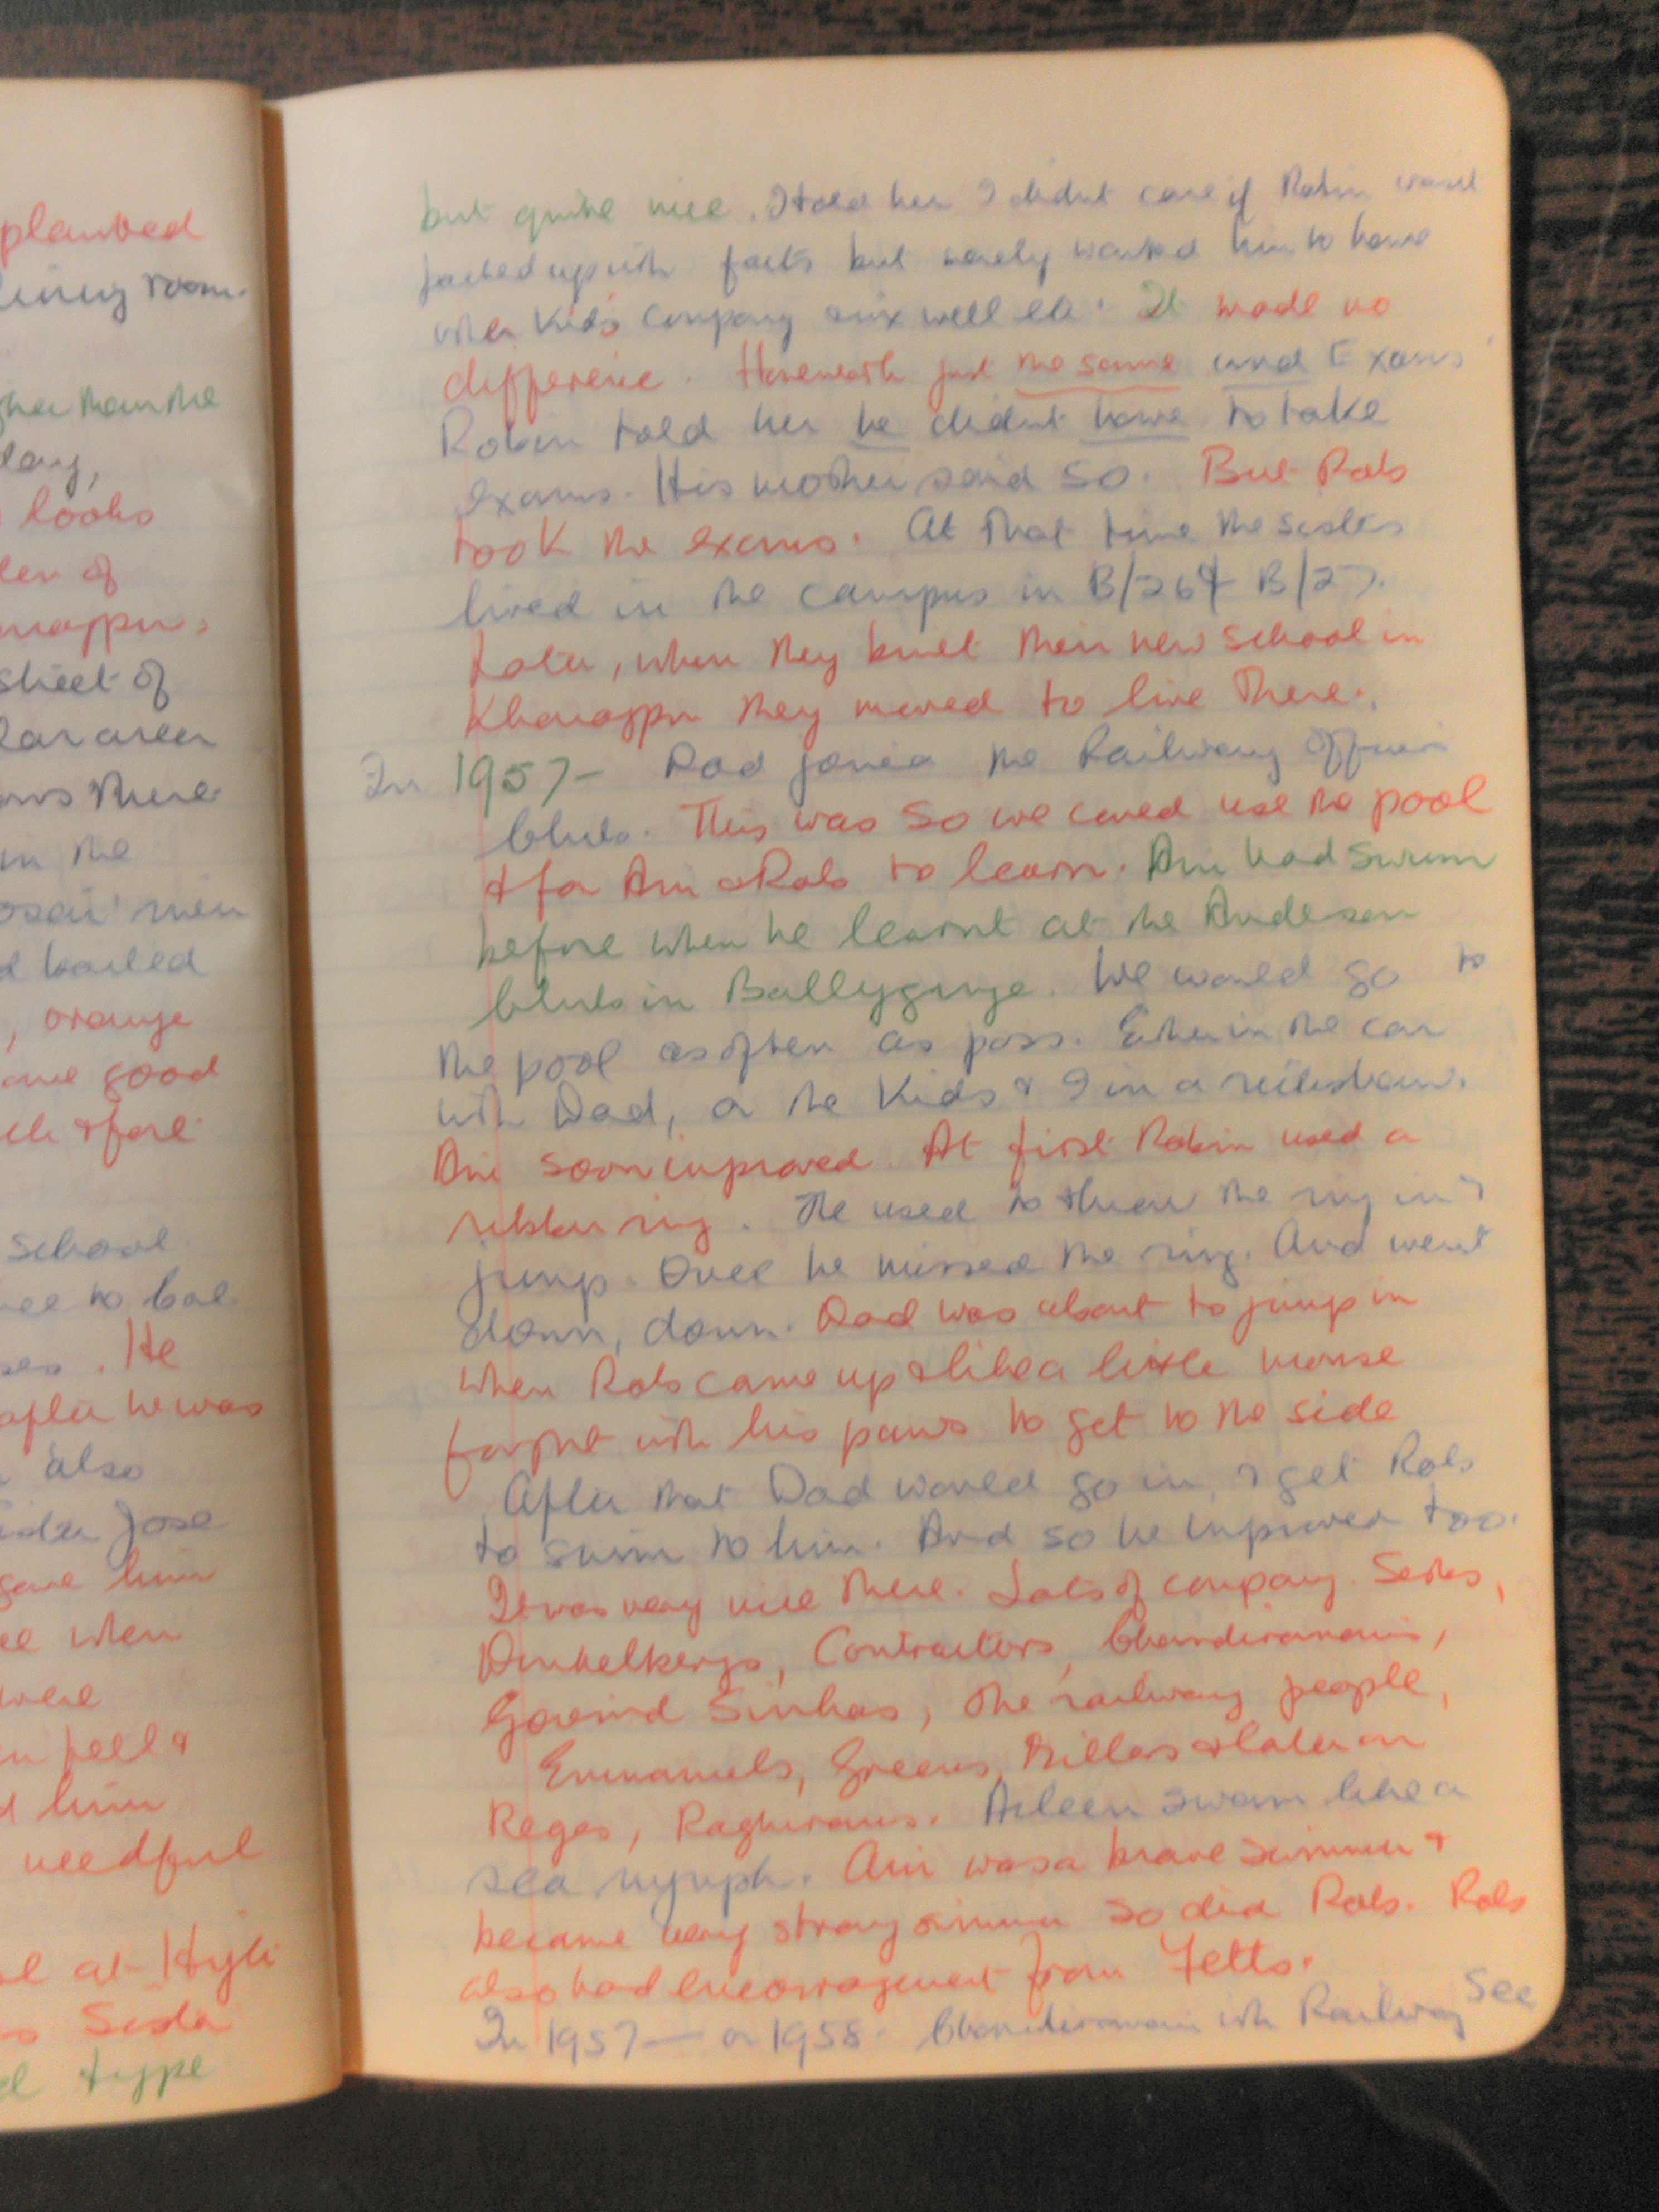 planted
room.
than the
day,
looks
of
sheet of
area
there
in the
men
boiled
, orange
good
& fort
school
to Cal
. He
after he was
also
Jose
gave him
when
were
fell &
him
needful
at Hijli
Sister
type
but quite nice. I told her I didnt care if Robin wasnt
packed up with facts but merely wanted him to have
other kid's company & mix well etc. It made no
difference. Homework just the same and Exams
Robin told her he didnt have to take
exams. His mother said so. But Rob
took the exams. At that time the sisters
lived in the campus in B/26 & B/27.
Later, when they built their new school in
Kharagpur they moved to live there.
In 1957 - Dad joined the Railway Officers
Club. This was so we could use the pool
& for Ani & Rob to learn. Ani had swum
before when he learnt at the Anderson
Club in Ballygunge. We would go to
the pool as often as poss. Either in the car
with Dad, or the Kids & I in a rickshaw.
Ani soon improved. At first Robin used a
rubber ring. He used to throw the ring in &
jump. Once he missed the ring. And went
down, down. Dad was about to jump in
when Rob came up & like a little mouse
fought with his paws to get to the side
After that Dad would go in, & get Rob
to swim to him. And so he improved too.
It was very nice there. Lots of company. Seths,
Dunkelbergs, Contractors, Chandiramanis,
Govind Sinhas, The railway people,
Emmanuels, Greens, Millars & later on
Reges, Raghwans. Aileen swam like a
sea nymph. Ani was a brave swimmer &
became very strong swimmer so did Rob. Rob
also had encouragement from Fetts.
In 1957 — or 1958. Chandiramani with Railway See